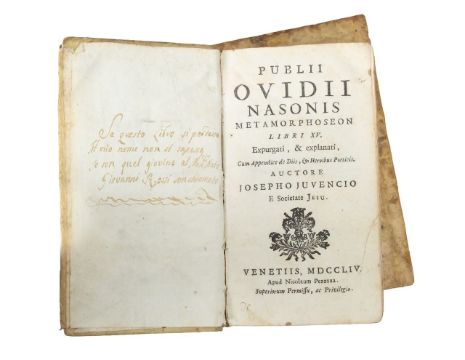 Se questo Libro si perdesse
Il mio nome non si sapesse
Io son quel giovine
Giovanni Rossi son chiamato
PUBLII
OVIDII
NASONIS
METAMORPHOSEON
LIBRI XV.
Expurgati, & explanati,
Cum Appendice de Diis, & Heroibus Poeticis.
AUCTORE
JOSEPHO JUVENCIO
E Societate JESU.
VENETIIS, MDCCLIV.
Apud Nicolaum Pezzana.
Superiorum Permissu, ac Privilegio.